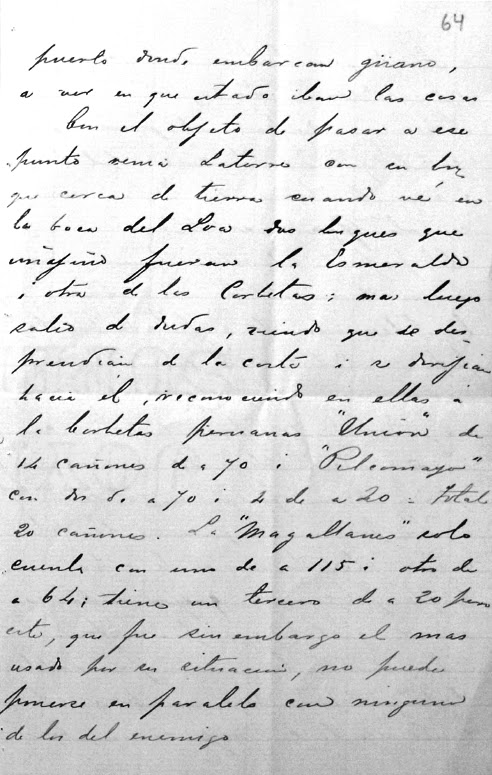 64
puerto donde embarcan guano,
a ver en que estado iban las cosas
Con el objeto de pasar a ese
punto venia Latorre con su bu
que cerca d tierra cuando vé en
la boca del Loa dos buques que
fueran la Esmeralda
i otra de las Corbetas; mas luego
salió d dudas, viendo que se des
prendian d la costa i se dirijian
hacia él, reconociendo en ellas á
la Corbetas peruanas "Union" de
14 cañones d a 70 i "Pilcomayo"
con dos d a 70 i 4 de a 20 - total
20 cañones. La "Magallanes" solo
cuenta con uno de a 115 i otro de
a 64; tiene un tercero d a 20 pero
este, que fue sin embargo el mas
usado por su situacion, no puede
ponerse en paralelo con ninguno
de los del enemigo